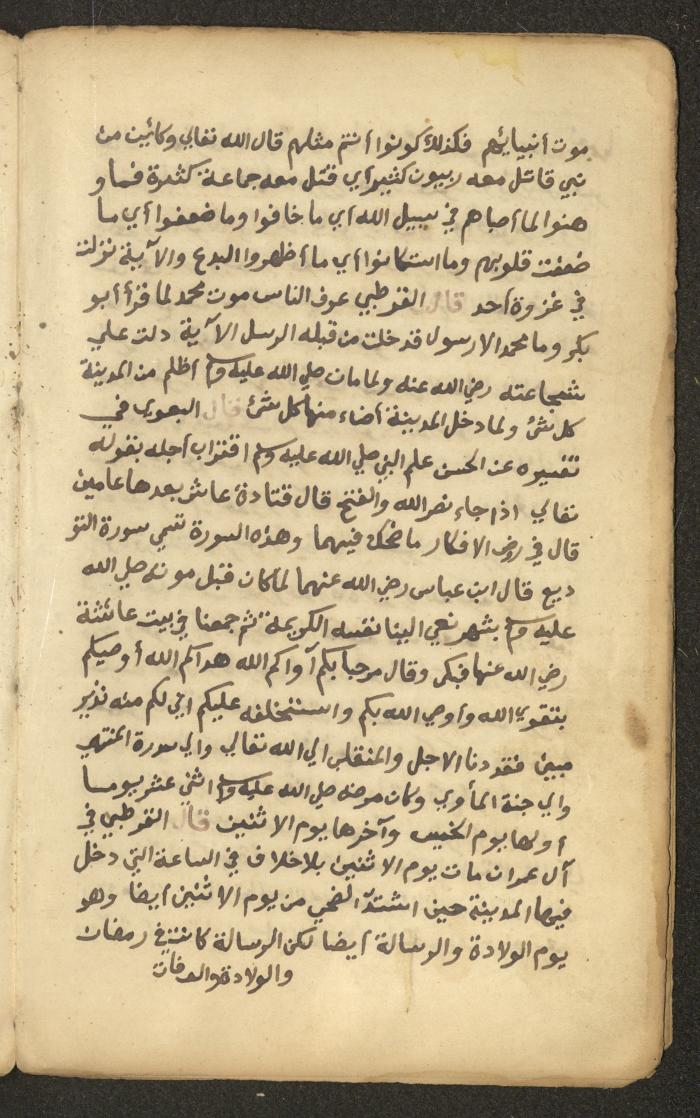 موت أنبيائهم فكذلك كونوا أنتم مثلهم قال الله تعالي وكائين من
نبي قاتل معه ربيون كثير أي قتل معه جماعة كثيرة فما و
هنوا لما أصابهم في سبيل الله أي ما خافوا وما ضعفوا أي ما
ضعفت قلوبهم وما استكانوا أي ما أظهروا البدع والآية نزلت
في غزوة أحد قال القرطبي عرف الناس موت محمد لما قرأ أبو
بكر وما محمد الا رسول قد خلت من قبله الرسل الآية دلت علي
شجاعته رضي الله عنه ولما مات صلي الله عليه وسلم أظلم من المدينة
كل شئ ولما دخل المدينة أضاء منها كل شئ قال البغوي في
تفسيره عن الحسن علم النبي صلي الله عليه وسلم اقتراب أجله بقوله
تعالي اذا جاء نصر الله والفتح قال قتادة عاش بعدها عامين
قال في روض الافكار ما ضحك فيهما وهذه السورة تسمي سورة التو
ديع قال ابن عباس رضي الله عنهما لما كان قبل موته صلي الله
عليه وسلم بشهر نعي الينا نفسه الكريمة ثم جمعنا في بيت عائشة
رضي الله عنها فبكي وقال مرحبا بكم آواكم الله هداكم الله أوصيكم
بتقوي الله وأوصي الله بكم واستخلفه عليكم اني لكم منه نذير
مبين فقد دنا الاجل والمنقلب الي الله تعالي والي سدرة المنتهي
والي جنة المأوي وكان مرضه صلي الله عليه وسلم اثني عشر يوما
أولها يوم الخميس وآخرها يوم الاثنين قال القرطبي في
آل عمران مات يوم الاثنين بلا خلاف في الساعة التي دخل
فيها المدينة حين اشتد الضحي من يوم الاثنين أيضا وهو
يوم الولادة والرسالة أيضا لكن الرسالة كانت في رمضان
والولادة والوفات